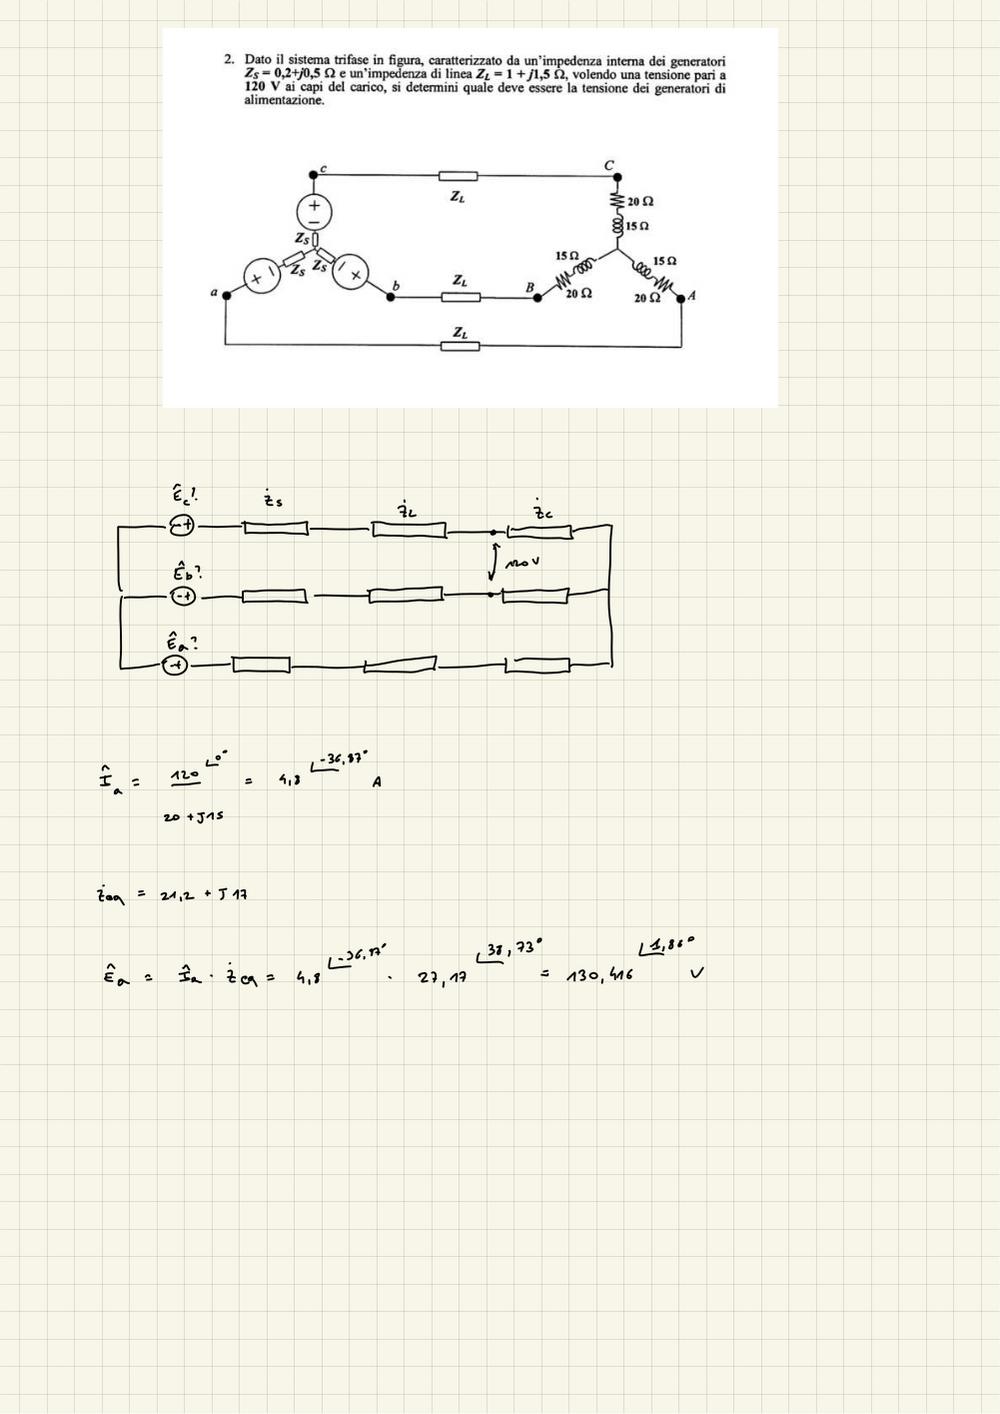 2. Dato il sistema trifase in figura, caratterizzato da un'impedenza interna dei generatori
Z_S = 0,2+j0,5 Ω e un'impedenza di linea Z_L = 1 + j1,5 Ω, volendo una tensione pari a
120 V ai capi del carico, si determini quale deve essere la tensione dei generatori di
alimentazione.
c
C
Z_L
20 Ω
15 Ω
Z_S
Z_S
Z_S
15 Ω
15 Ω
a
b
Z_L
B
20 Ω
20 Ω
A
Z_L
Ê_c?
Ż_s
Ż_L
Ż_c
120 V
Ê_b?
Ê_a?
Î_a = 120 ∠0° / 20 + J15 = 4,8 ∠-36,87° A
Ż_eq = 21,2 + J17
Ê_a = Î_a · Ż_eq = 4,8 ∠-36,87° · 27,17 ∠38,73° = 130,416 ∠1,86° V